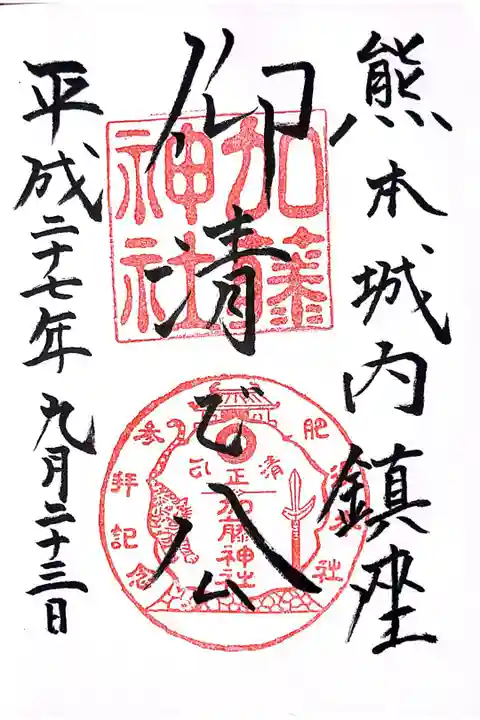 熊本城内鎮座
仰清正公
平成二十七年九月二十三日
加藤
神社
清正公
加藤神社
参拝記念